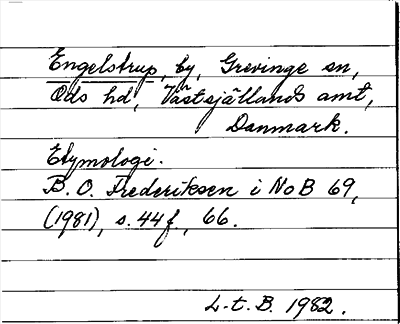 Engelstrup, by, Grevinge sn,
Ods hd, Västsjällands amt,
Danmark.
Etymologi.
B. O. Frederiksen i NoB 69,
(1981), s. 44 f., 66.
L-t. B. 1982.